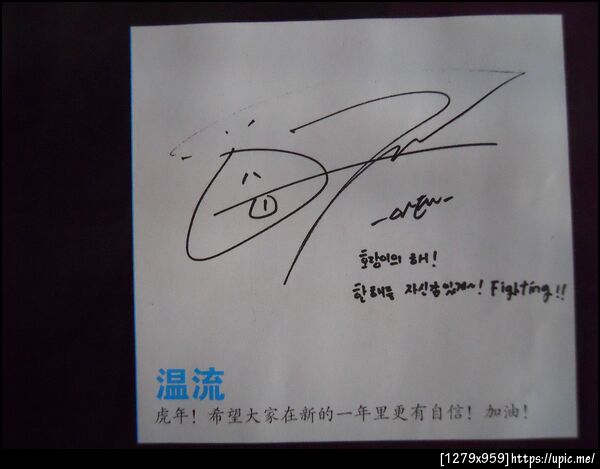 호랑이의 해!
한해를 자신감있게~! Fighting!!
温流
虎年！希望大家在新的一年里更有自信！加油！
[1279x959]https://upic.me/